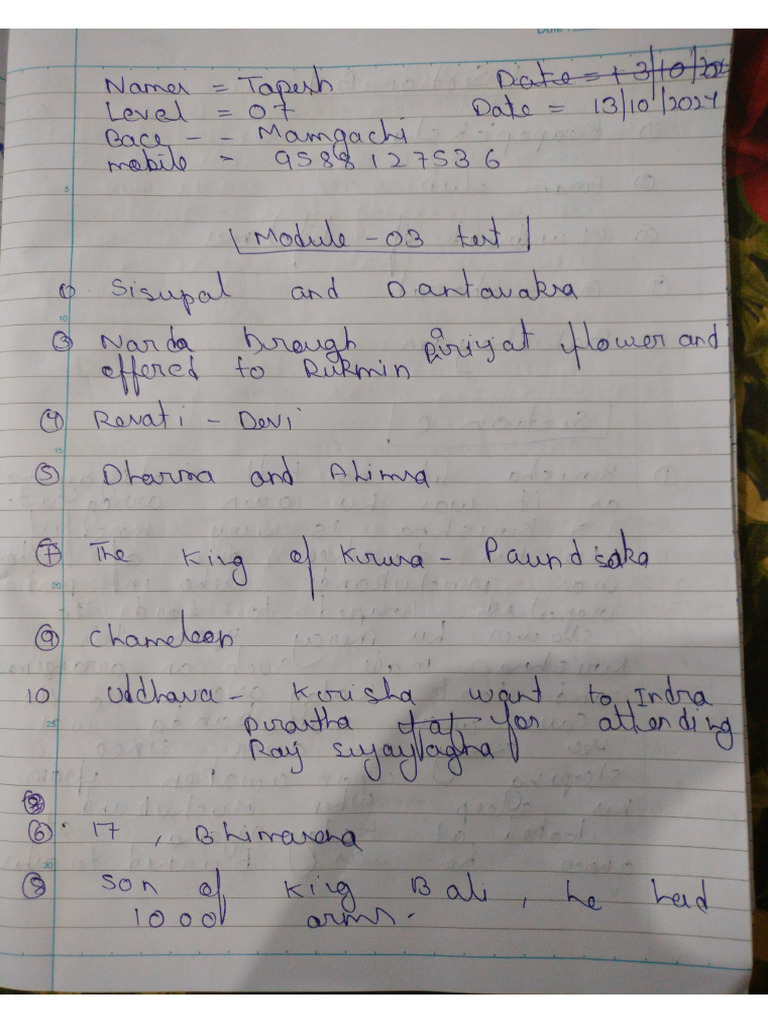 Names = Tapesh
Date = 13/10/202
Level = 07
Date = 13/10/2024
Bace - - Mamgachi
mobile = 9588127536
Module - 03 test
① Sisupal and Dantavakra
③ Narda through pariyat flower and
offered to Rukmin
④ Revati - Devi
⑤ Dharma and Ahimsa
⑦ The King of Kurusa - Paundsaka
⑨ Chameleon
10 Uddhava - Krisha want to Indra
prastha for attending
Raj Suyay Yagha
⑥ 17, Bhimasena
⑧ Son of King Bali, he had
1000 arms.